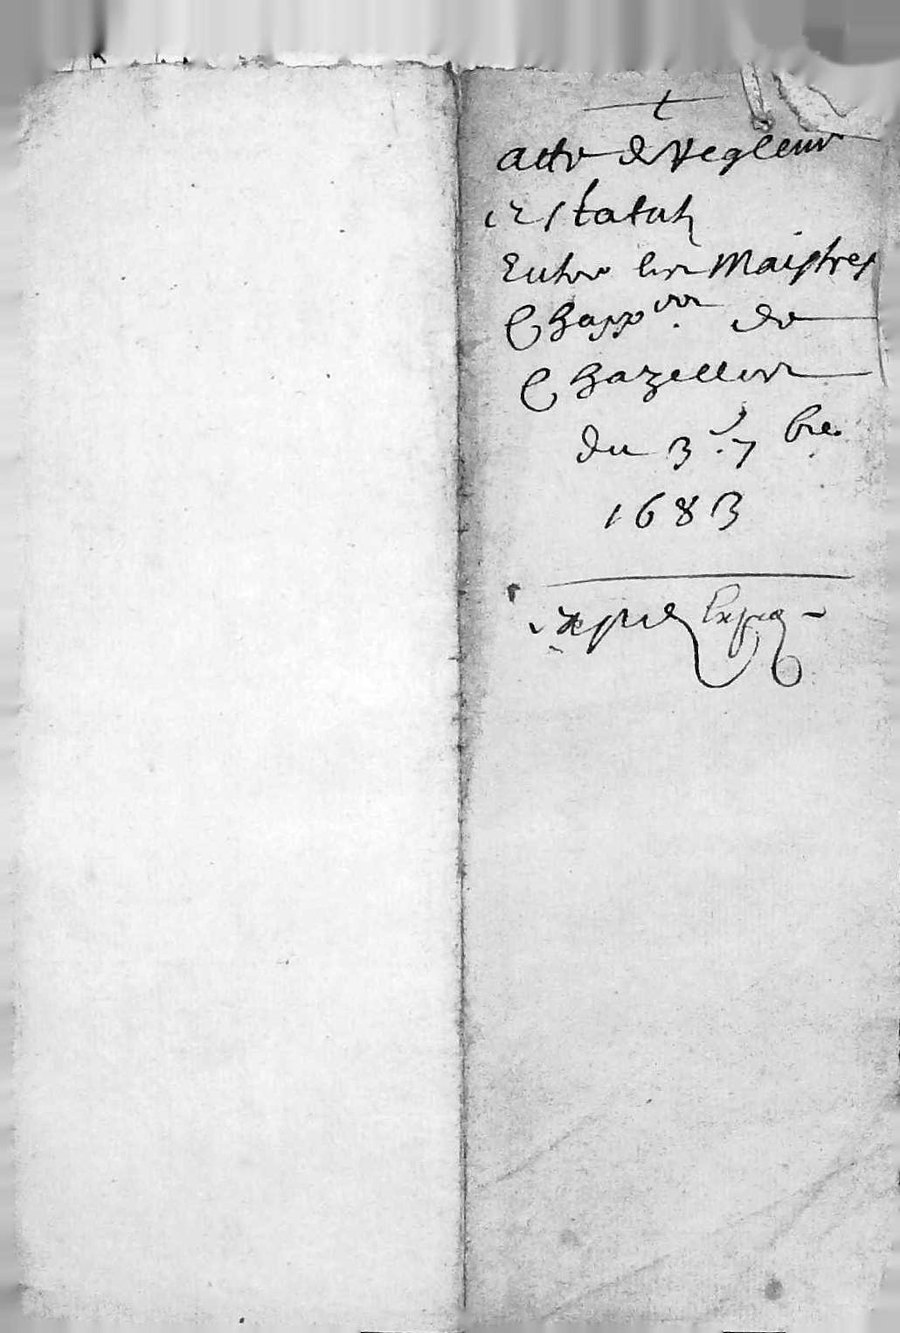 t
acte de Reglemt
et statuts
Entre les Maistres
Chappers. de
Chazelles
du 3e. 7bre.
1683